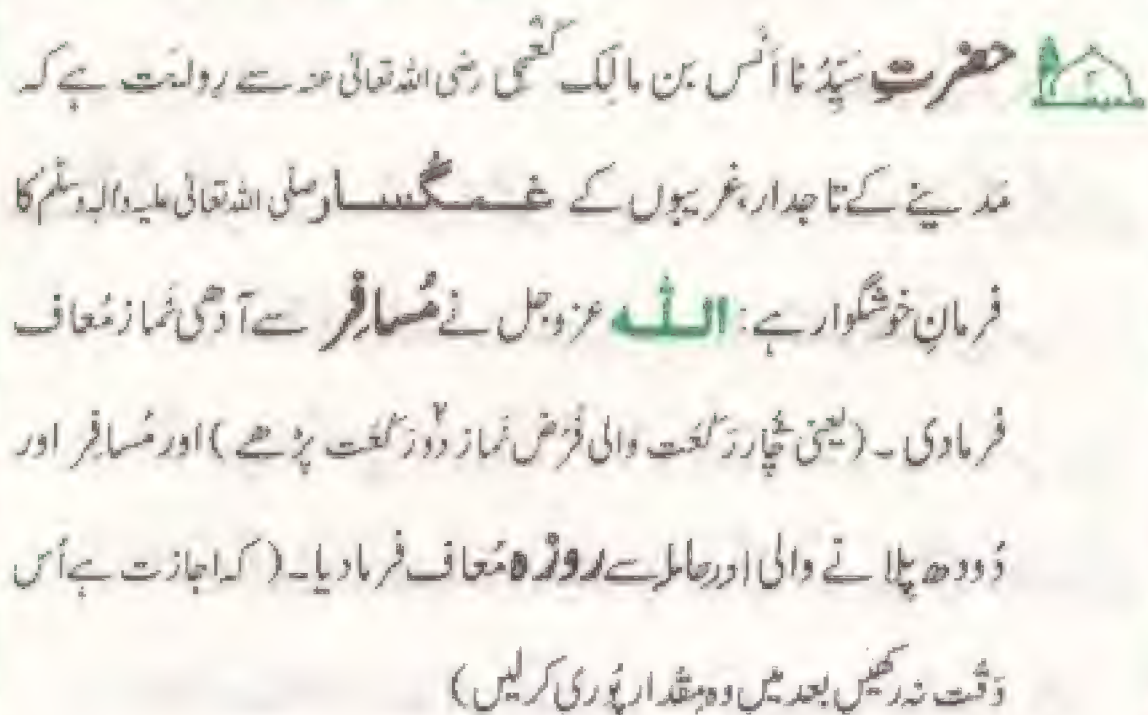 حضرتِ سَیِّدُنا اَنَس بن مالِک کَعْبی رضی اللہ تعالیٰ عنہ سے روایَت ہے کہ
مَدینے کے تاجدار، غریبوں کے غمگسار صلی اللہ تعالیٰ علیہ والہ وسلّم کا
فرمانِ خوشگوار ہے: اللہ عزوجل نے مُسافِر سے آدھی نَماز مُعاف
فرمادی ۔ (یعنی چار رَکْعَت والی فَرْض نَماز دو رَکْعَت پڑھے) اور مُسافِر اور
دُودھ پلانے والی اور حامِلہ سے روزہ مُعاف فرمادیا۔ (کہ اجازت ہے اُس
وَقْت نہ رکھیں بعد میں وہ مِقْدار پُوری کرلیں)